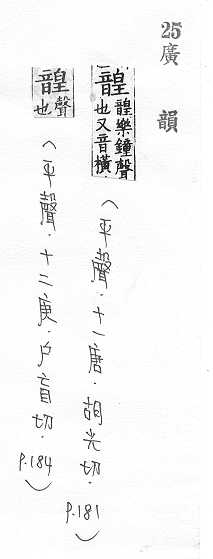 25廣韻
韹韹樂鐘聲也又音橫
(平聲.十一唐.胡光切.p.181)
韹聲也
(平聲.十二庚.户盲切.p.184)